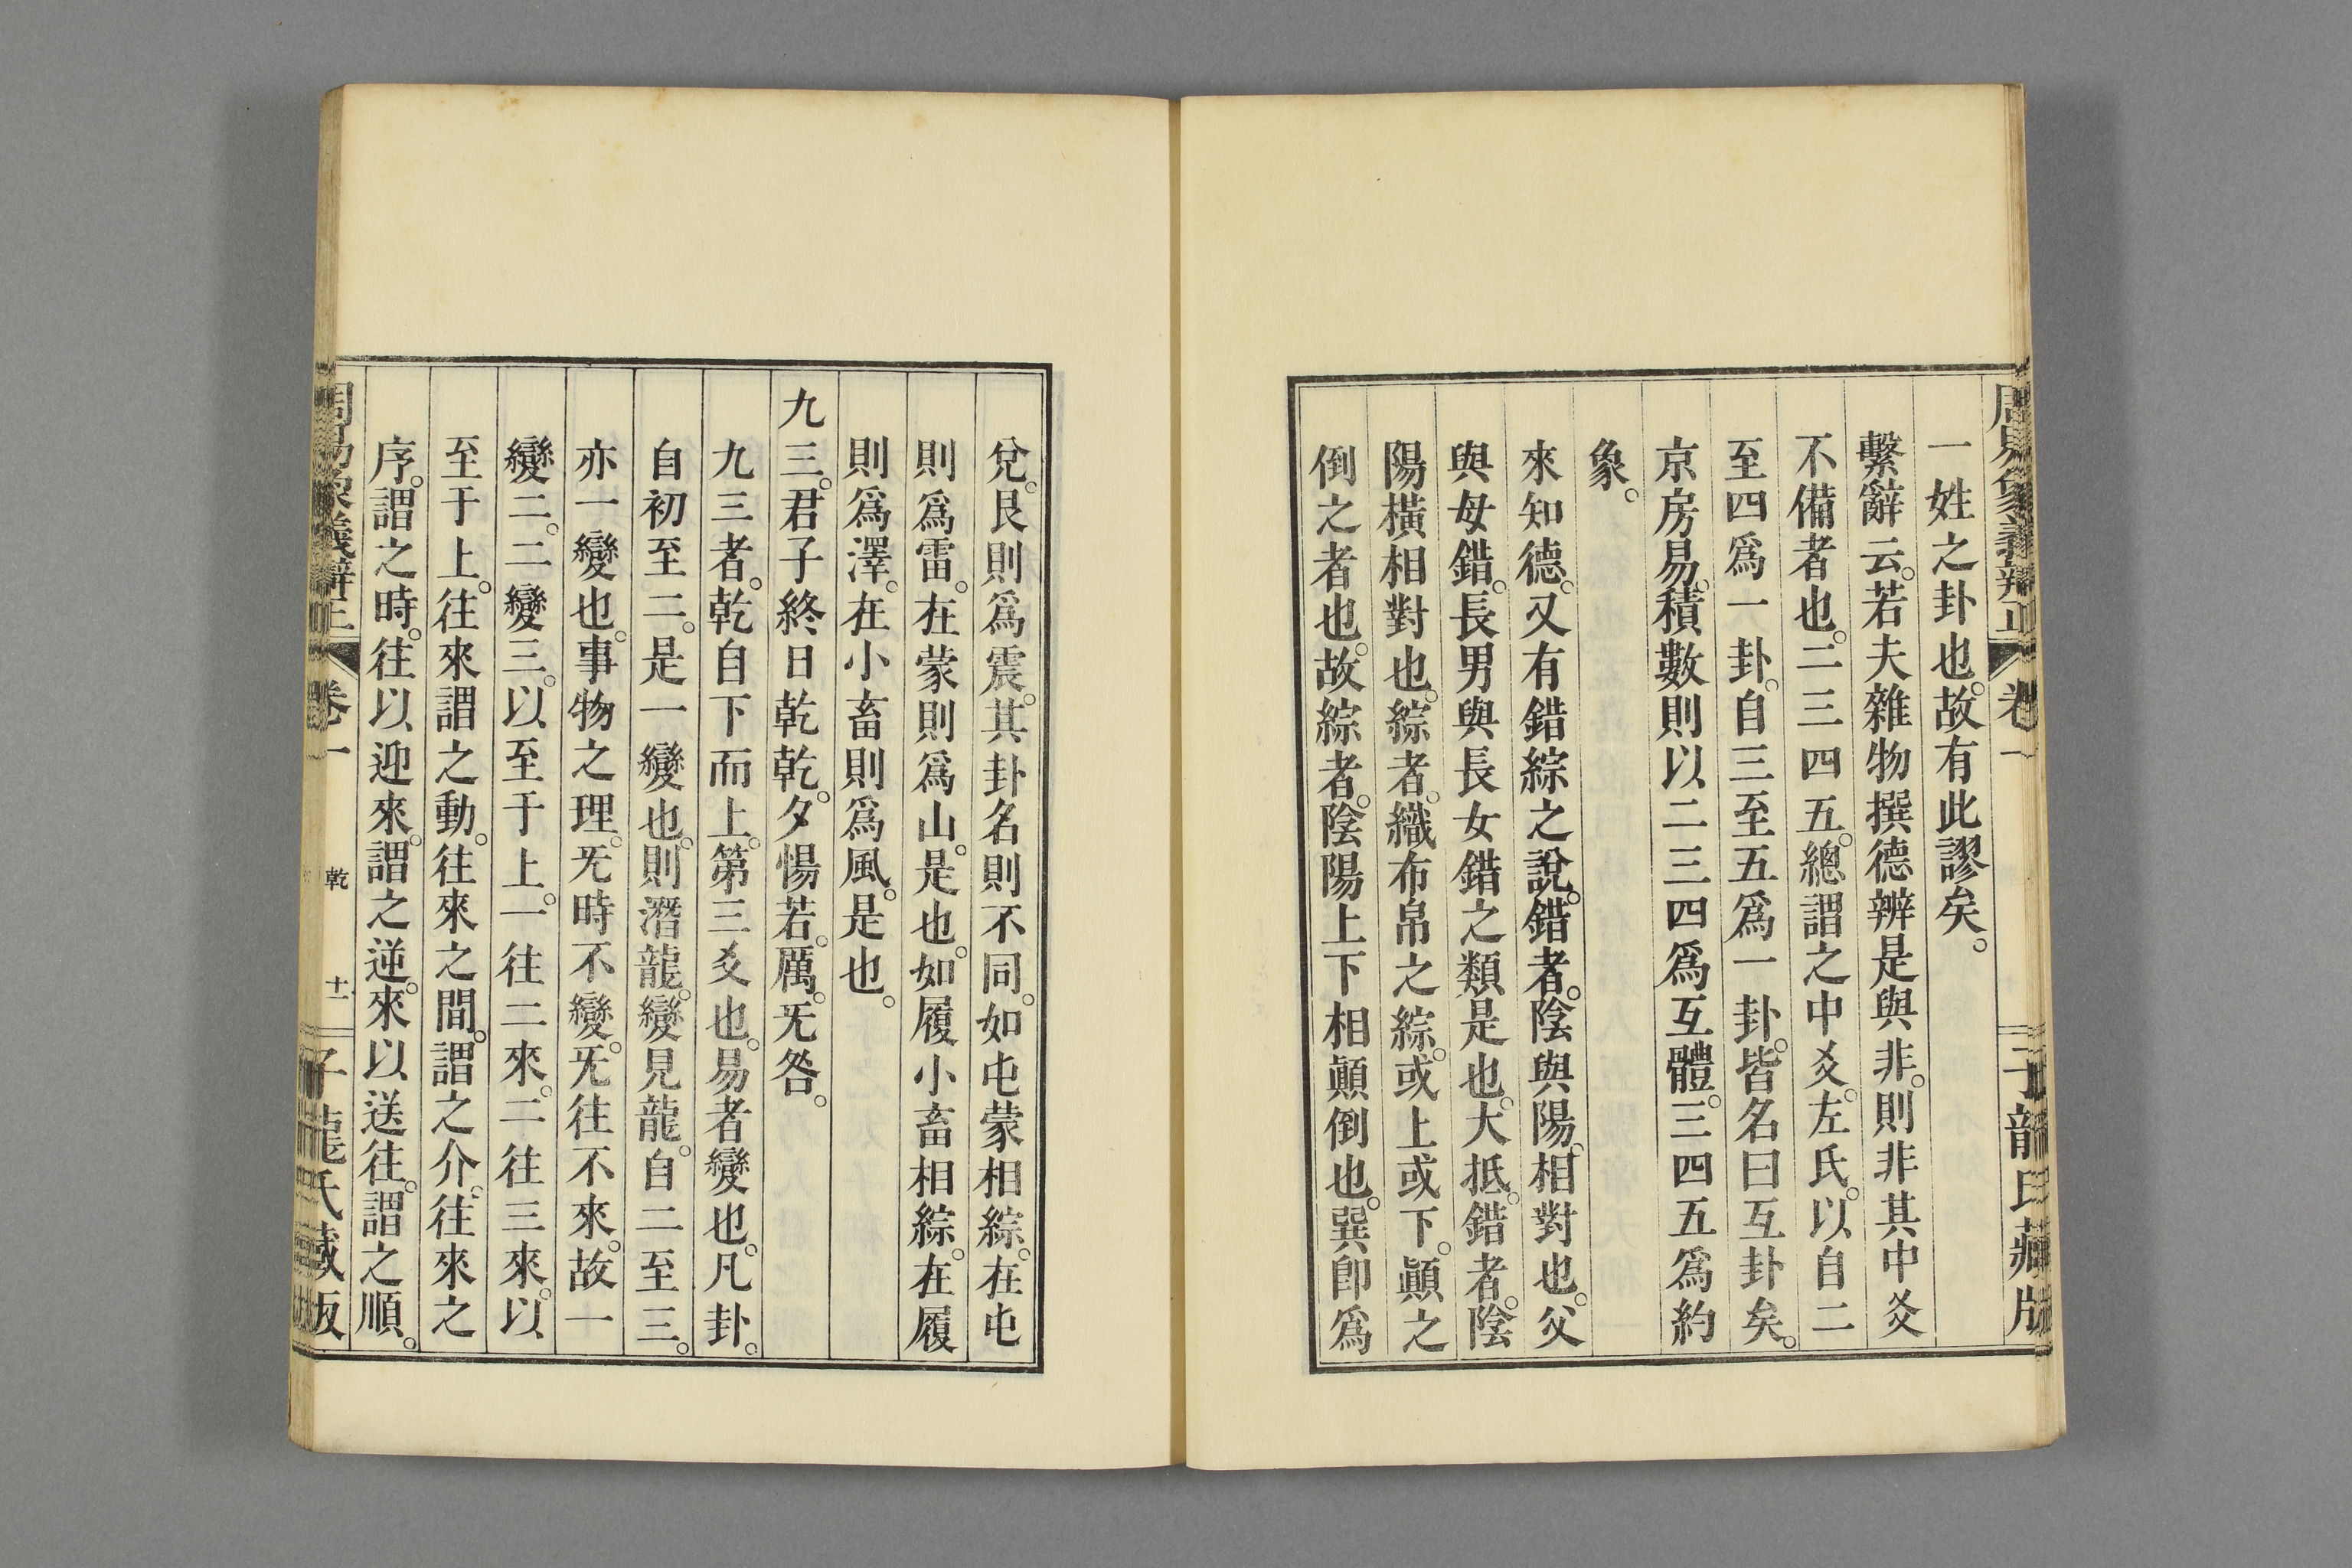 周易象義辨正 卷一 子龍氏藏版
一姓之卦也。故有此謬矣。
繫辭云。若夫雜物撰德辨是與非。則非其中爻
不備者也。二三四五。總謂之中爻。左氏。以自二
至四爲一卦。自三至五爲一卦。皆名曰互卦矣。
京房易。積數則以二三四爲互體。三四五爲約
象。
來知德。又有錯綜之說。錯者。陰與陽。相對也。父
與母錯。長男與長女錯之類是也。大抵。錯者。陰
陽橫相對也。綜者。織布帛之綜。或上或下。顚之
倒之者也。故綜者。陰陽上下相顚倒也。巽卽爲
兌。艮則爲震。其卦名則不同。如屯蒙相綜。在屯
則爲雷。在蒙則爲山。是也。如履小畜相綜。在履
則爲澤。在小畜則爲風。是也。
九三。君子終日乾乾。夕惕若。厲。无咎。
九三者。乾自下而上。第三爻也。易者變也。凡卦。
自初至二。是一變也。則潛龍。變見龍。自二至三。
亦一變也。事物之理。无時不變。无往不來。故一
變二。二變三。以至于上。一往二來。二往三來。以
至于上。往來謂之動。往來之間。謂之介。往來之
序。謂之時。往以迎來。謂之逆。來以送往。謂之順。
周易象義辨正 卷一 乾 十一 子龍氏藏版